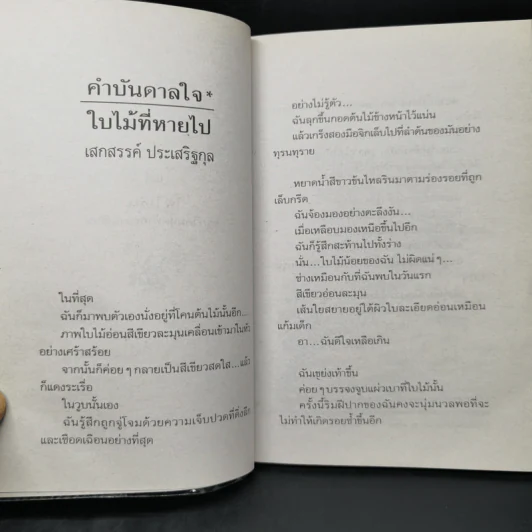 คำบันดาลใจ*
ใบไม้ที่หายไป
เสกสรรค์ ประเสริฐกุล
ในที่สุด
ฉันก็มาพบตัวเองนั่งอยู่ที่โคนต้นไม้นั้นอีก...
ภาพใบไม้อ่อนสีเขียวละมุนเคลื่อนเข้ามาในหัว
อย่างเศร้าสร้อย
จากนั้นก็ค่อยๆ กลายเป็นสีเขียวสดใส...แล้ว
ก็แดงระเรื่อ
ในวูบนั้นเอง
ฉันรู้สึกถูกจู่โจมด้วยความเจ็บปวดที่ดิ่งลึก
และเชือดเฉือนอย่างที่สุด
อย่างไม่รู้ตัว...
ฉันลุกขึ้นกอดต้นไม้ข้างหน้าไว้แน่น
แล้วเกร็งสองมือจิกเล็บไปที่ลำต้นของมันอย่าง
ทุรนทุราย
หยาดน้ำสีขาวข้นไหลรินมาตามร่องรอยที่ถูก
เล็บกรีด
ฉันจ้องมองอย่างตะลึงงัน...
เมื่อเหลือบมองเหนือขึ้นไปอีก
ฉันก็รู้สึกสะท้านไปทั้งร่าง
นั่น...ใบไม้น้อยของฉัน ไม่ผิดแน่ๆ...
ช่างเหมือนกับที่ฉันพบในวันแรก
สีเขียวอ่อนละมุน
เส้นใยสยายอยู่ใต้ผิวใบละเอียดอ่อนเหมือน
แก้มเด็ก
อา...ฉันดีใจเหลือเกิน
ฉันเขย่งเท้าขึ้น
ค่อยๆ บรรจงจูบแผ่วเบาที่ใบไม้นั้น
ครั้งนี้ริมฝีปากของฉันคงจะนุ่มนวลพอที่จะ
ไม่ทำให้เกิดรอยช้ำขึ้นอีก